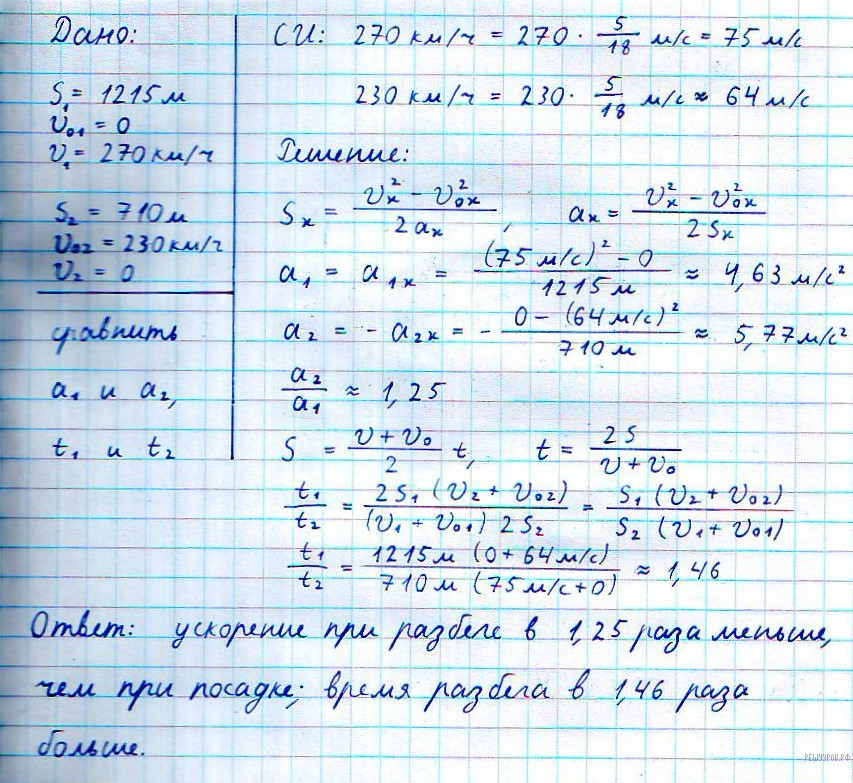 Дано:
S₁ = 1215 м
υ₀₁ = 0
υ₁ = 270 км/ч
S₂ = 710 м
υ₀₂ = 230 км/ч
υ₂ = 0
сравнить
a₁ и a₂,
t₁ и t₂
СИ: 270 км/ч = 270 · 5/18 м/с = 75 м/с
230 км/ч = 230 · 5/18 м/с ≈ 64 м/с
Решение:
Sₓ = (υₓ² − υ₀ₓ²)/(2aₓ), aₓ = (υₓ² − υ₀ₓ²)/(2Sₓ)
a₁ = a₁ₓ = ((75 м/с)² − 0)/(1215 м) ≈ 4,63 м/с²
a₂ = − a₂ₓ = − (0 − (64 м/с)²)/(710 м) ≈ 5,77 м/с²
a₂/a₁ ≈ 1,25
S = (υ + υ₀)/2 t, t = 2S/(υ + υ₀)
t₁/t₂ = (2S₁ (υ₂ + υ₀₂))/((υ₁ + υ₀₁) 2S₂) = (S₁ (υ₂ + υ₀₂))/(S₂ (υ₁ + υ₀₁))
t₁/t₂ = (1215 м (0 + 64 м/с))/(710 м (75 м/с + 0)) ≈ 1,46
Ответ: ускорение при разбеге в 1,25 раза меньше,
чем при посадке; время разбега в 1,46 раза
больше.
РЕШУУРОК.РФ